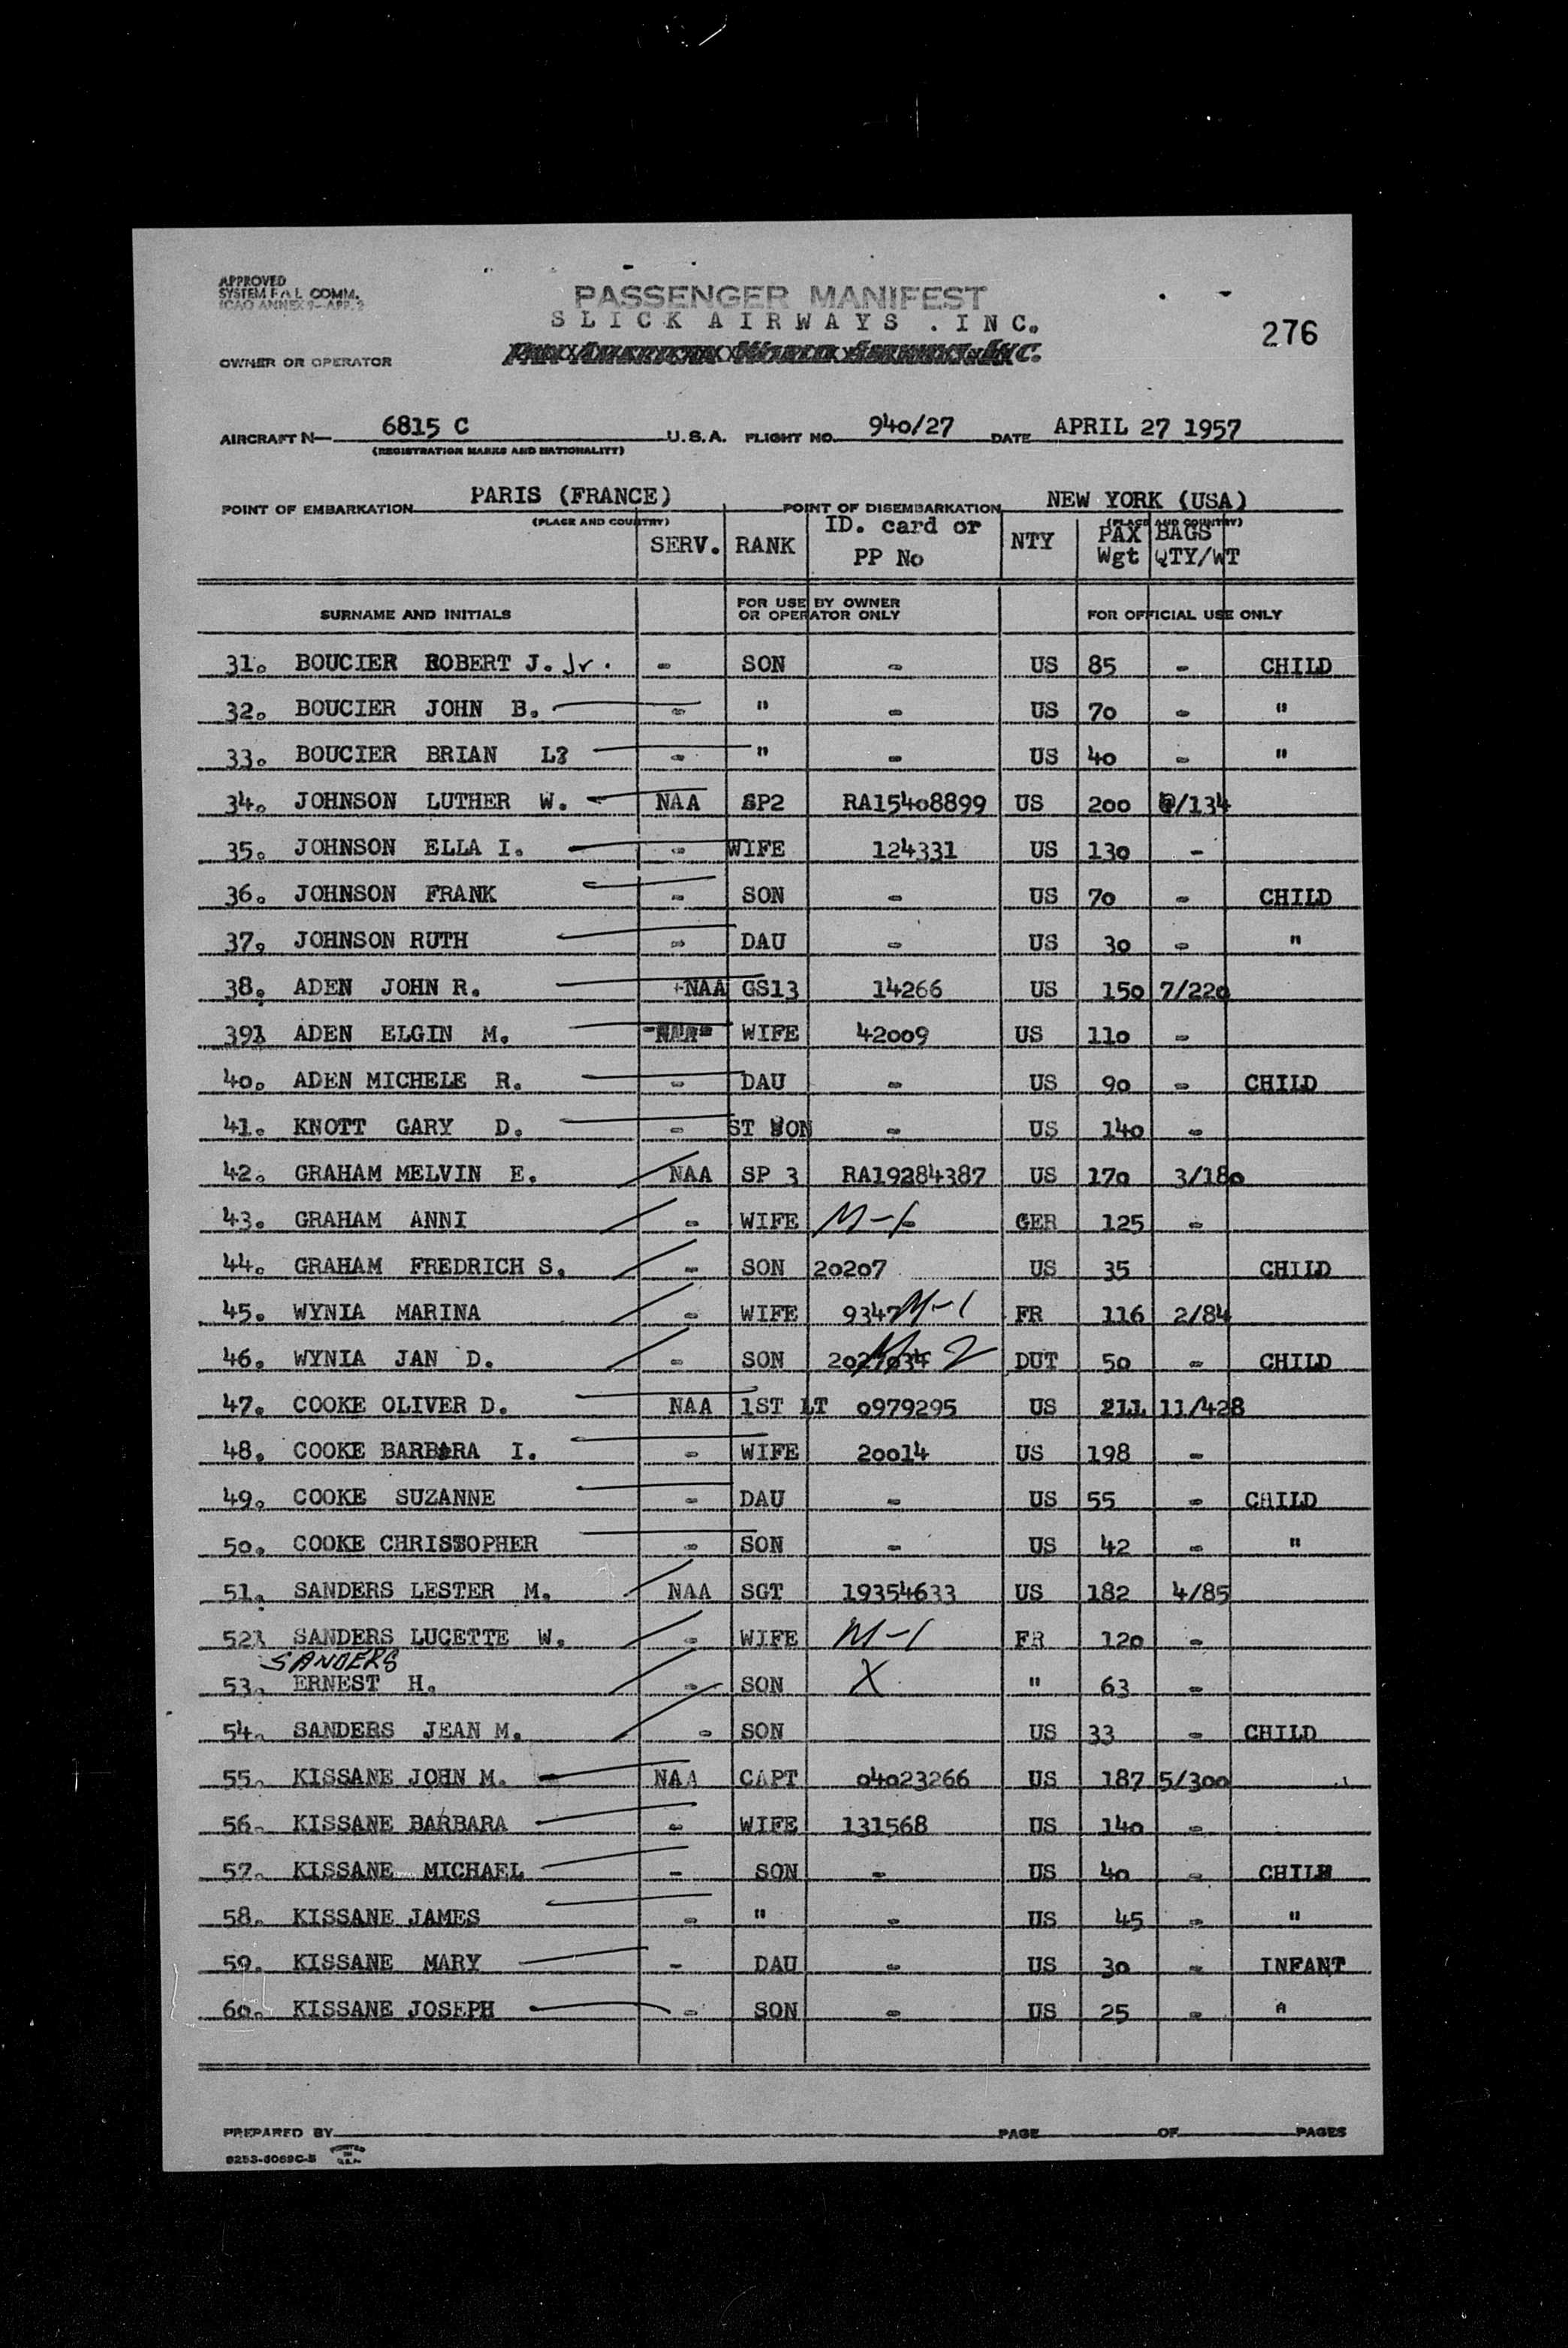 APPROVED
SYSTEM F.A.L. COMM.
ICAO ANNEX 9- APP. 2
PASSENGER MANIFEST
SLICK AIRWAYS .INC.
276
OWNER OR OPERATOR
AIRCRAFT N— 6815 C U.S.A. FLIGHT NO. 940/27 DATE APRIL 27 1957
(REGISTRATION MARKS AND NATIONALITY)
POINT OF EMBARKATION PARIS (FRANCE) POINT OF DISEMBARKATION NEW YORK (USA)
(PLACE AND COUNTRY) (PLACE AND COUNTRY)
SERV. RANK ID. card or PP No NTY PAX Wgt BAGS QTY/WT
SURNAME AND INITIALS FOR USE BY OWNER OR OPERATOR ONLY FOR OFFICIAL USE ONLY
31. BOUCIER ROBERT J. Jr. - SON - US 85 - CHILD
32. BOUCIER JOHN B. - " - US 70 - "
33. BOUCIER BRIAN L? - " - US 40 - "
34. JOHNSON LUTHER W. NAA SP2 RA15408899 US 200 /134
35. JOHNSON ELLA I. - WIFE 124331 US 130 -
36. JOHNSON FRANK - SON - US 70 - CHILD
37. JOHNSON RUTH - DAU - US 30 - "
38. ADEN JOHN R. NAA GS13 14266 US 150 7/220
39. ADEN ELGIN M. WIFE 42009 US 110 -
40. ADEN MICHELE R. - DAU - US 90 - CHILD
41. KNOTT GARY D. - ST SON - US 140 -
42. GRAHAM MELVIN E. NAA SP 3 RA19284387 US 170 3/180
43. GRAHAM ANNI - WIFE M-1 GER 125 -
44. GRAHAM FREDRICH S. - SON 20207 US 35 CHILD
45. WYNIA MARINA - WIFE 9347 M-1 FR 116 2/84
46. WYNIA JAN D. - SON 2027034 M-2 DUT 50 - CHILD
47. COOKE OLIVER D. NAA 1ST LT 0979295 US 211 11/428
48. COOKE BARBARA I. - WIFE 20014 US 198 -
49. COOKE SUZANNE - DAU - US 55 - CHILD
50. COOKE CHRISTOPHER - SON - US 42 - "
51. SANDERS LESTER M. NAA SGT 19354633 US 182 4/85
52. SANDERS LUCETTE W. - WIFE M-1 FR 120 -
SANDERS
53. ERNEST H. - SON X " 63 -
54. SANDERS JEAN M. - SON US 33 - CHILD
55. KISSANE JOHN M. NAA CAPT 04023266 US 187 5/300
56. KISSANE BARBARA - WIFE 131568 US 140 -
57. KISSANE MICHAEL - SON - US 40 - CHILD
58. KISSANE JAMES - " - US 45 - "
59. KISSANE MARY - DAU - US 30 - INFANT
60. KISSANE JOSEPH - SON - US 25 - "
PREPARED BY PAGE OF PAGES
PRINTED IN U.S.A.